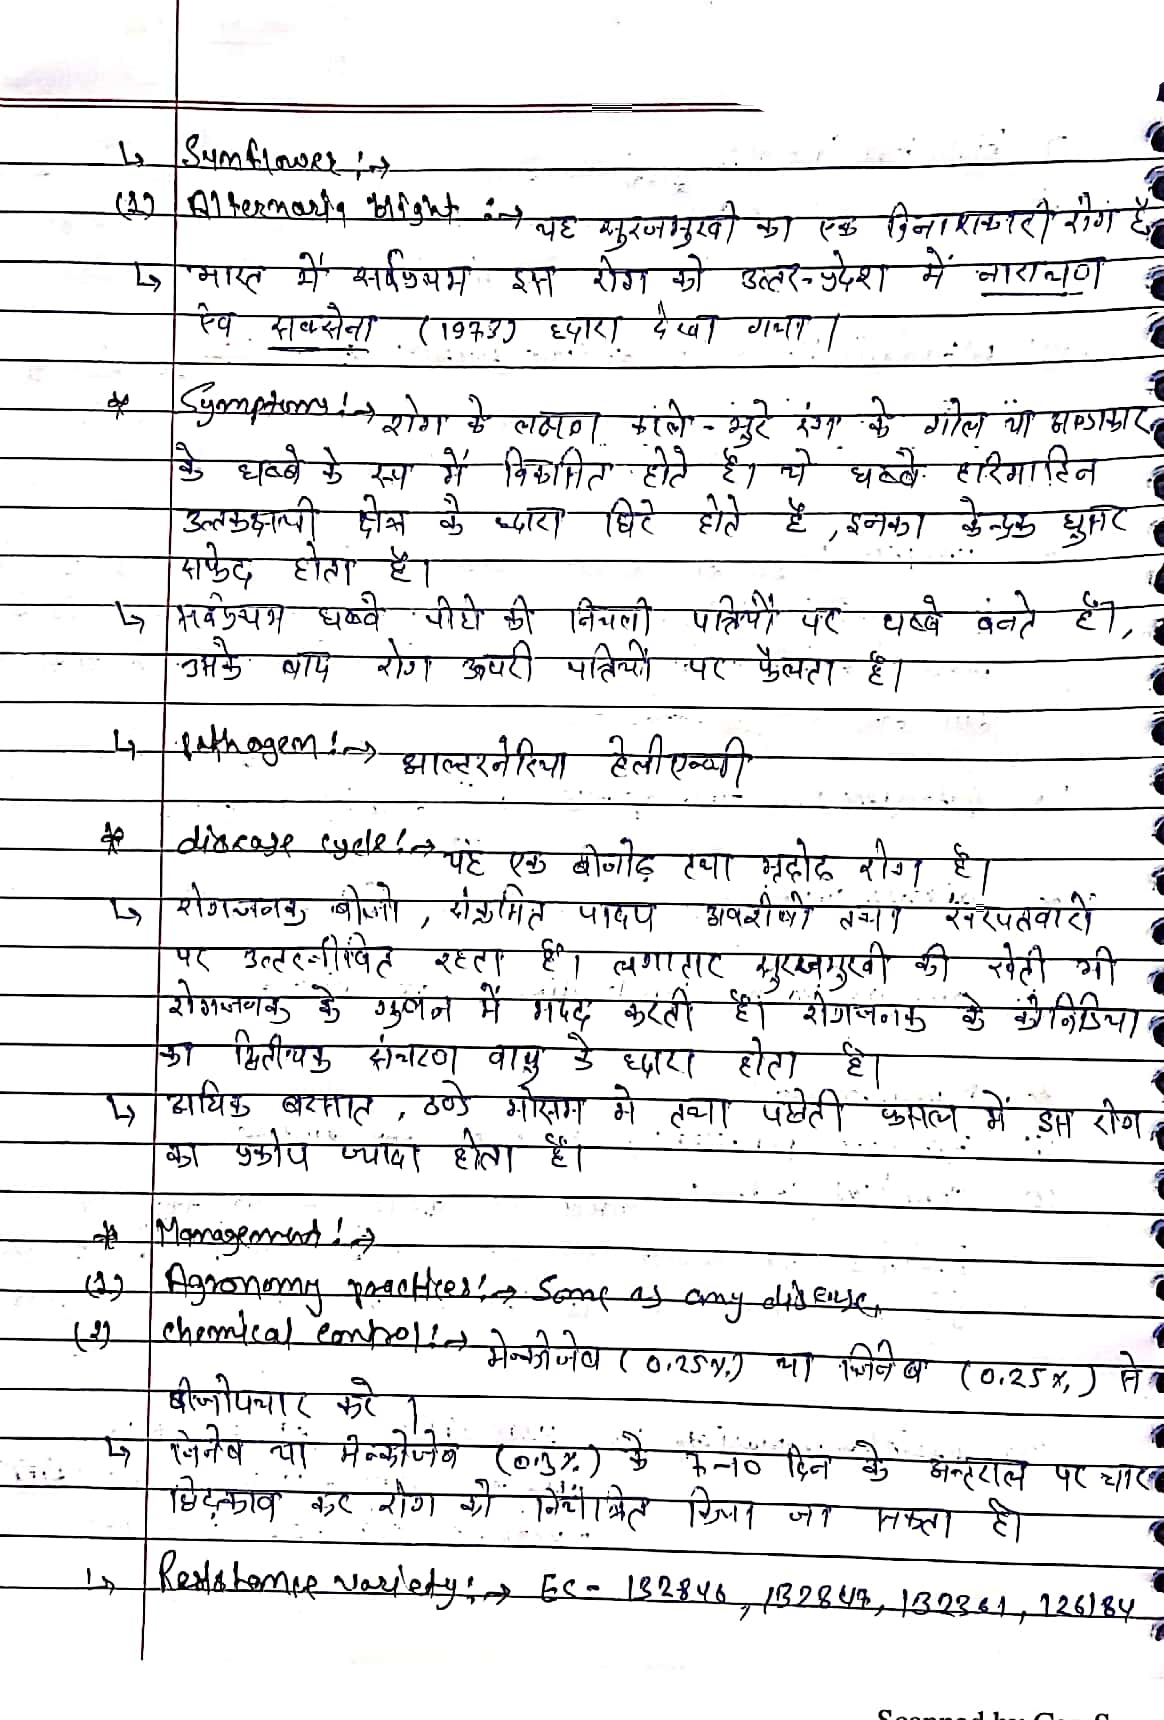 ↳ Sunflower :→
(1) Alternaria blight :→ यह सुरजमुखी का एक विनाशकारी रोग है
↳ भारत में सर्वप्रथम इस रोग को उत्तर-प्रदेश में नारायण
ऐव सक्सेना (1973) ध्दारा देखा गया।
* Symptoms :→ रोग के लक्षण काले-भुरे रंग के गोल या अण्डाकार
के धब्बे के रूप में विकसित होते है। ये धब्बे हरिमाहिन
उत्तकक्षयी क्षेत्र के ध्दारा घिरे होते है, इनका केन्द्रक धुसर
सफेद होता है।
↳ सर्वप्रथम धब्बे पौधे की निचली पत्तियों पर धब्बे बनते है।,
उसके बाद रोग ऊपरी पत्तियों पर फैलता है।
↳ pathogen :→ आल्टरनेरिया हेलीएन्थी
* disease cycle :→ यह एक बीजोढ़ तथा मृदोढ रोग है।
↳ रोगजनक बीजो, संक्रमित पादप अवशेषो तथा खरपतवारों
पर उत्तरजीवित रहता है। लगातार सुरजमुखी की खेती भी
रोगजनक के गुणन में मदद करती है। रोगजनक के कोनिडिया
का द्वितीयक संचरण वायु के ध्दारा होता है।
↳ अधिक बरसात, ठण्डे मौसम मे तथा पछेती फसल में इस रोग
का प्रकोप ज्यादा होता है।
* Management :→
(1) Agronomy practices :→ Same as any disease.
(2) chemical control :→ मेन्कोजेव (0.25%) या जिनेब (0.25%) से
बीजोपचार करे।
↳ जिनेब या मेन्कोजेब (0.3%) के 7-10 दिन के अन्तराल पर चार
छिड़काव कर रोग को नियंत्रित किया जा सकता है।
↳ Resistance variety :→ EC - 132846, 132847, 132361, 126184